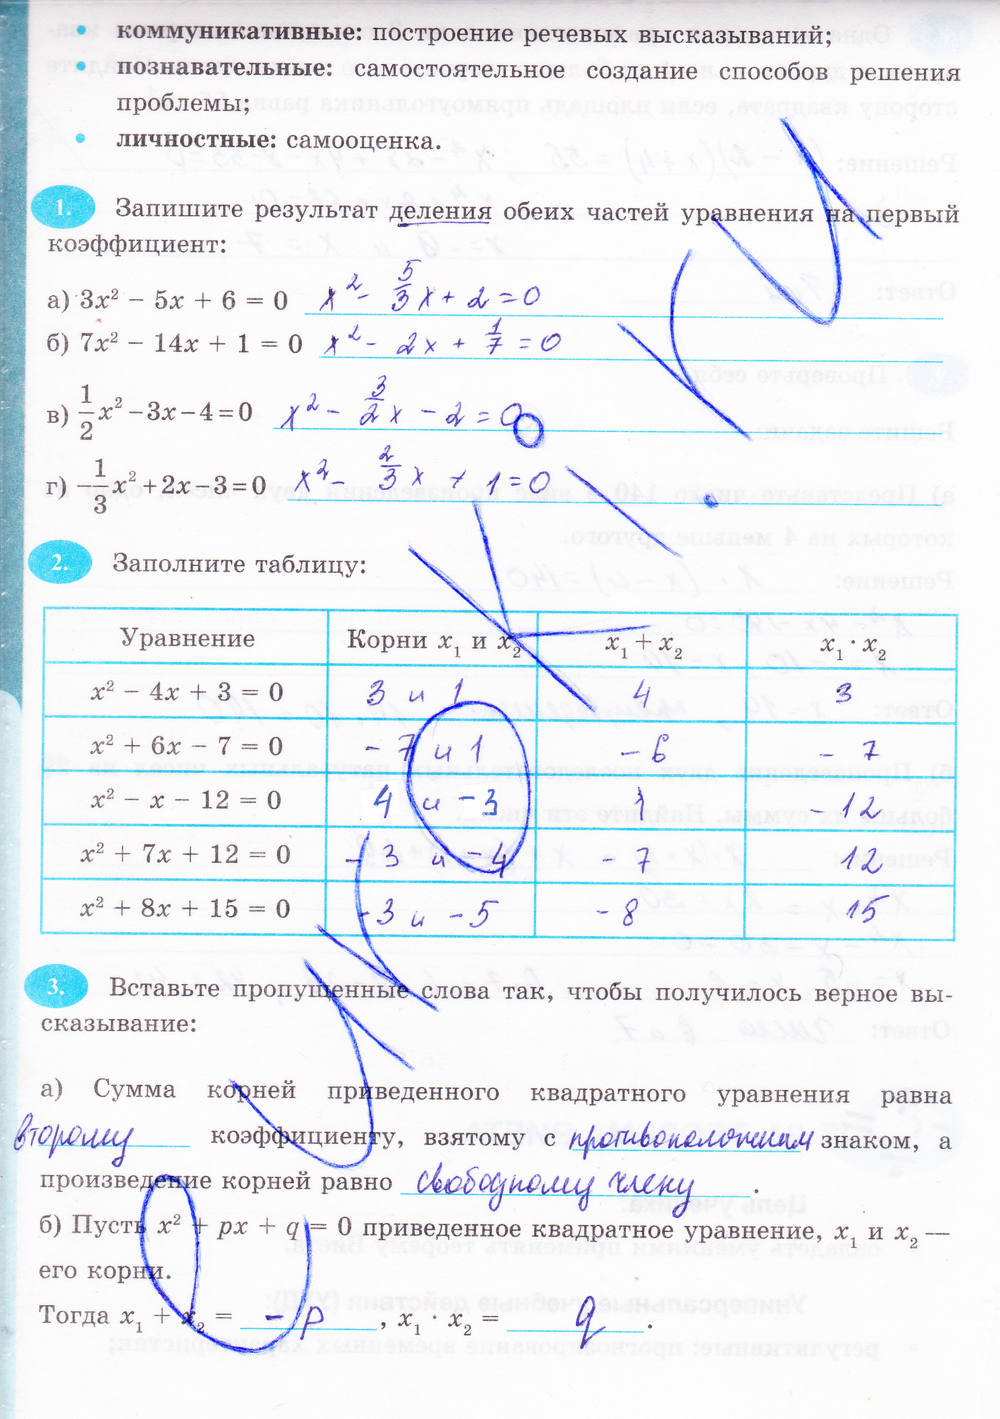 • коммуникативные: построение речевых высказываний;
познавательные: самостоятельное создание способов решения
проблемы;
• личностные: самооценка.
1. Запишите результат деления обеих частей уравнения на первый
коэффициент:
а) 3x² − 5x + 6 = 0 x² − 5/3 x + 2 = 0
б) 7x² − 14x + 1 = 0 x² − 2x + 1/7 = 0
в) 1/2 x² − 3x − 4 = 0 x² − 3/2 x − 2 = 0
г) −1/3 x² + 2x − 3 = 0 x² − 2/3 x + 1 = 0
2. Заполните таблицу:
Уравнение Корни x₁ и x₂ x₁ + x₂ x₁ · x₂
x² − 4x + 3 = 0 3 и 1 4 3
x² + 6x − 7 = 0 −7 и 1 −6 −7
x² − x − 12 = 0 4 и −3 1 −12
x² + 7x + 12 = 0 −3 и −4 −7 12
x² + 8x + 15 = 0 −3 и −5 −8 15
3. Вставьте пропущенные слова так, чтобы получилось верное вы-
сказывание:
а) Сумма корней приведенного квадратного уравнения равна
второму коэффициенту, взятому с противоположным знаком, а
произведение корней равно свободному члену.
б) Пусть x² + px + q = 0 приведенное квадратное уравнение, x₁ и x₂ —
его корни.
Тогда x₁ + x₂ = −p, x₁ · x₂ = q.